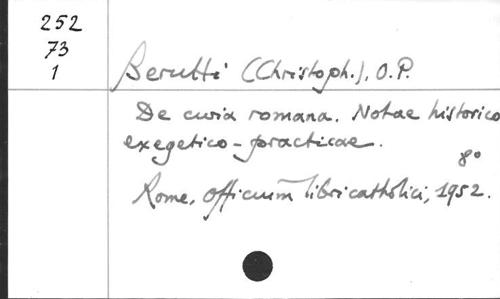 252
73
1
Berutti (Christoph.), O.P.
De curia romana. Notae historico
exegetico-practicae.
8°
Rome, Officium libri catholici, 1952.